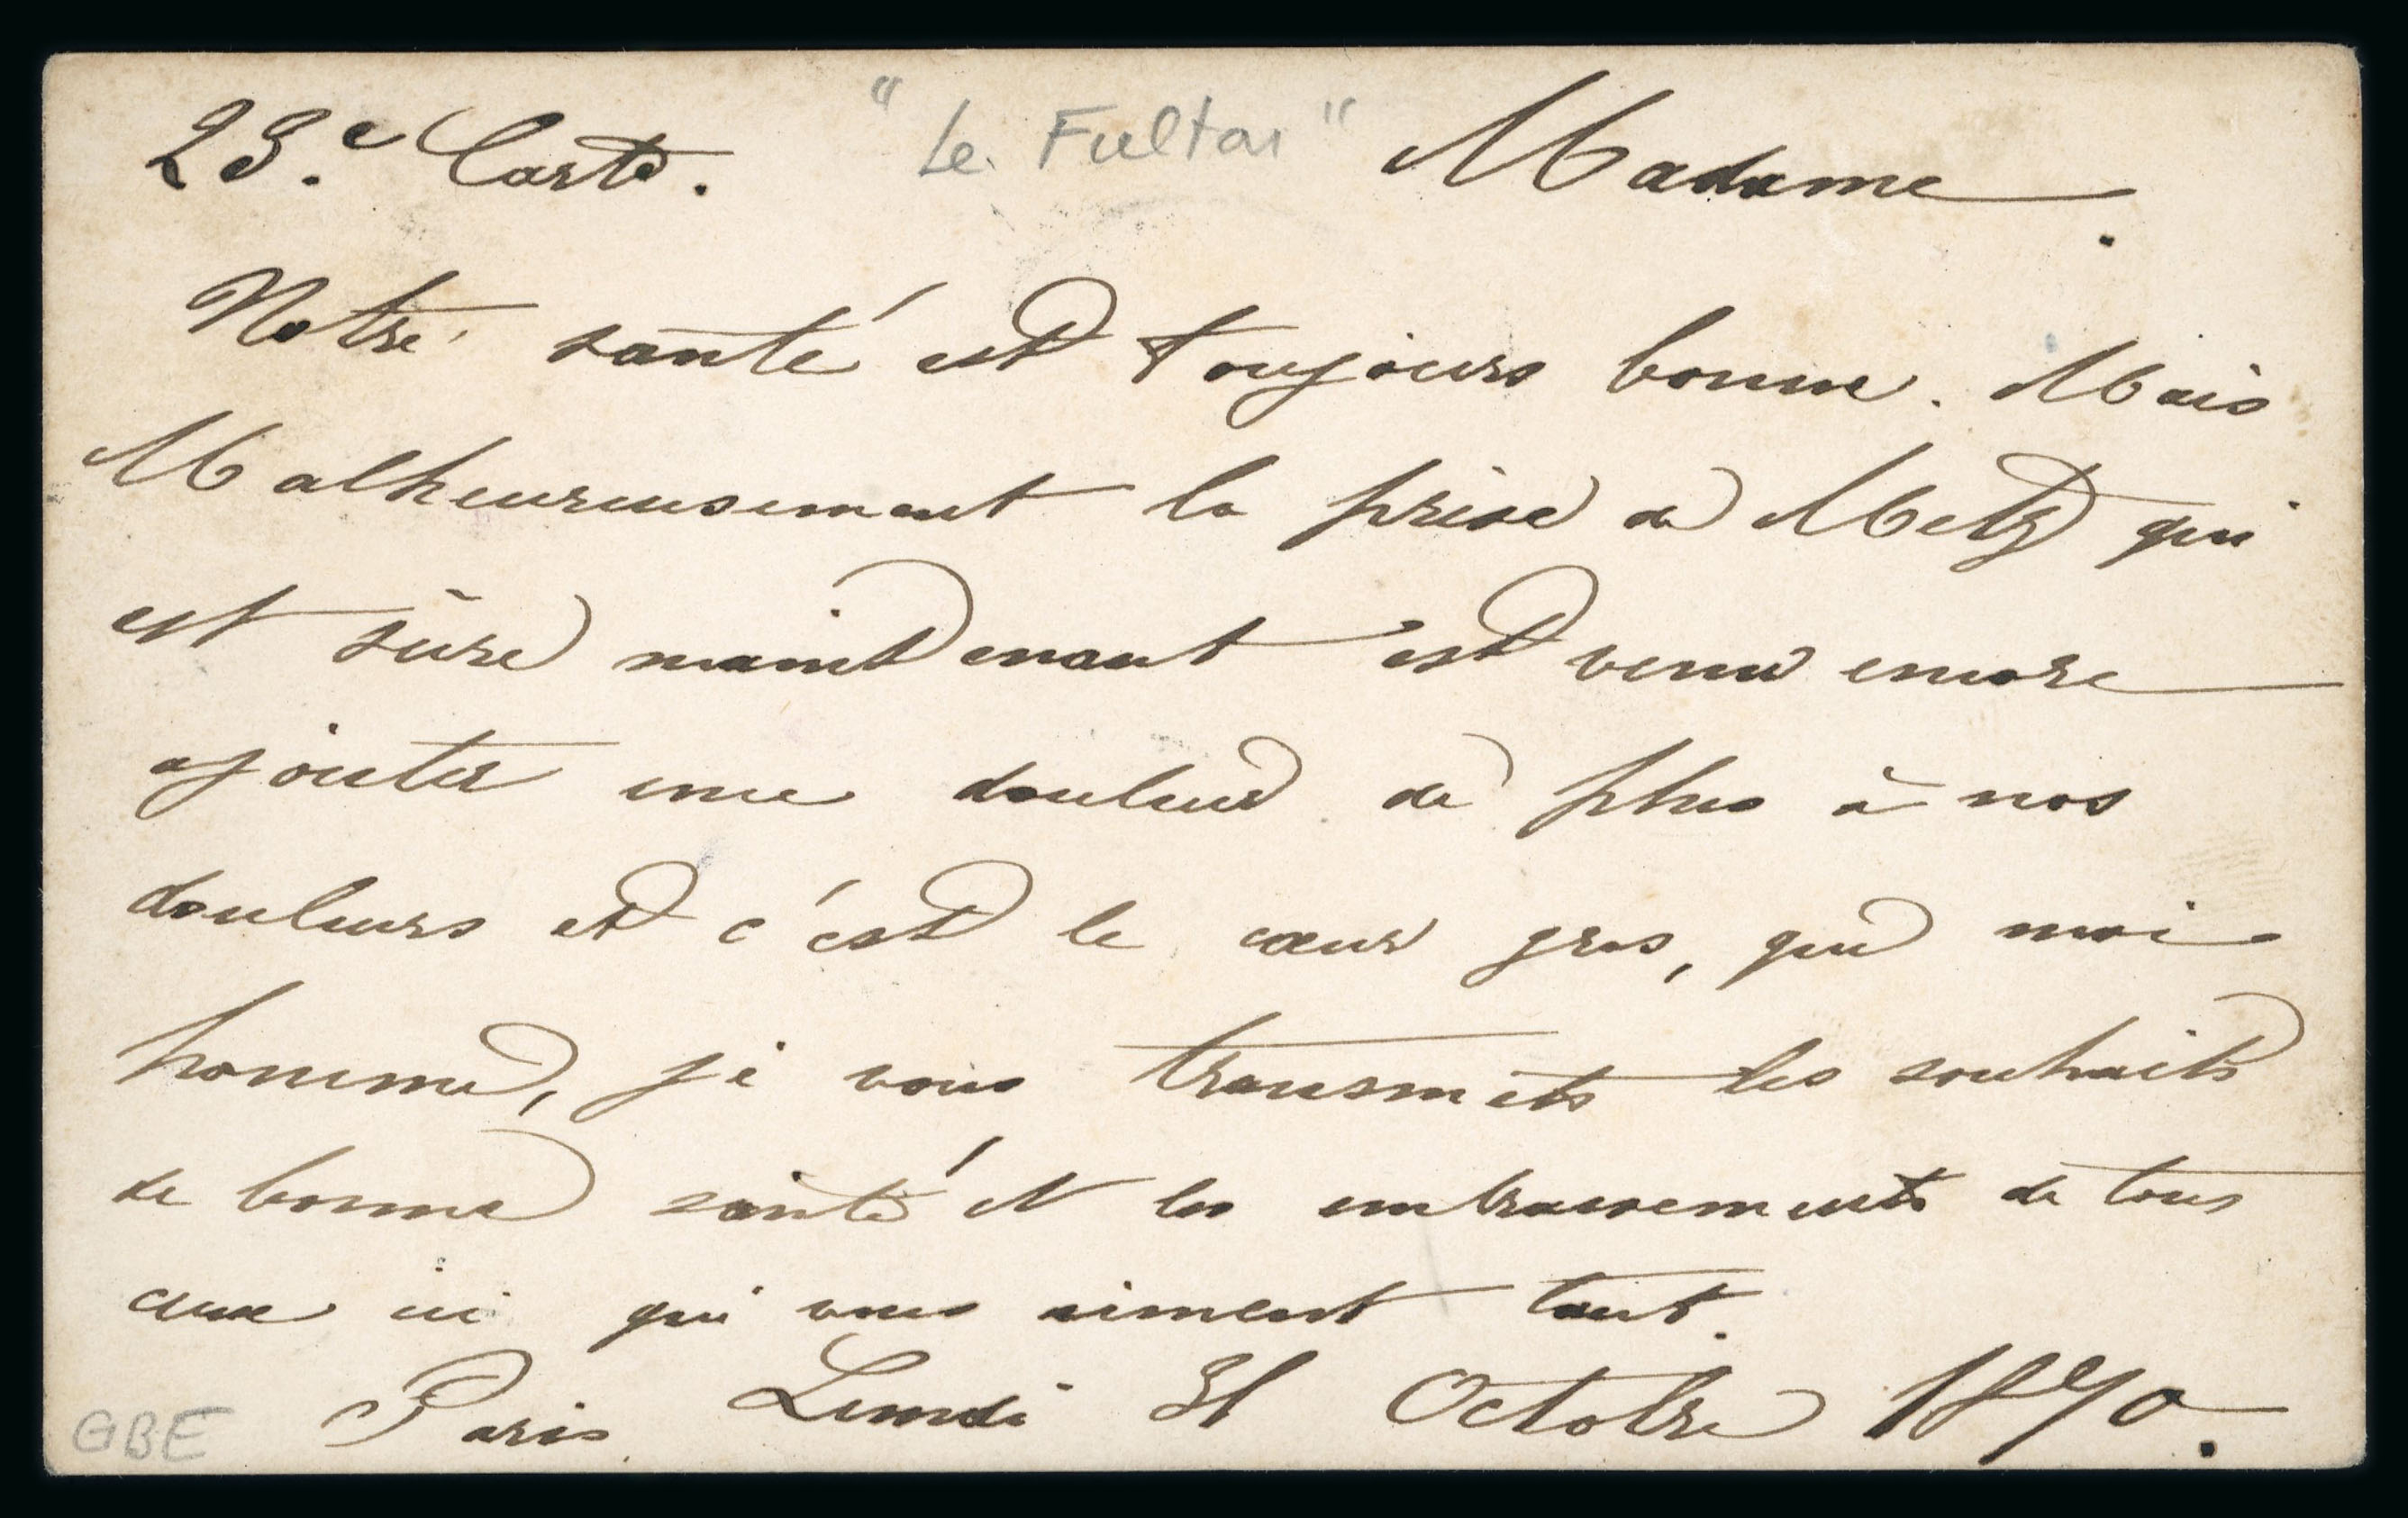 23.e Carte. "Le Fulton" Madame.
Notre santé est toujours bonne. Mais
Malheureusement la prise de Metz qui
est sûre maintenant est venu encore
ajouter une douleur de plus à nos
douleurs et c'est le cœur gros, que moi
homme, je vous transmets les souhaits
de bonne santé et les embrassements de tous
ceux ici qui vous aiment tant.
Paris Lundi 31 Octobre 1870.
GBE